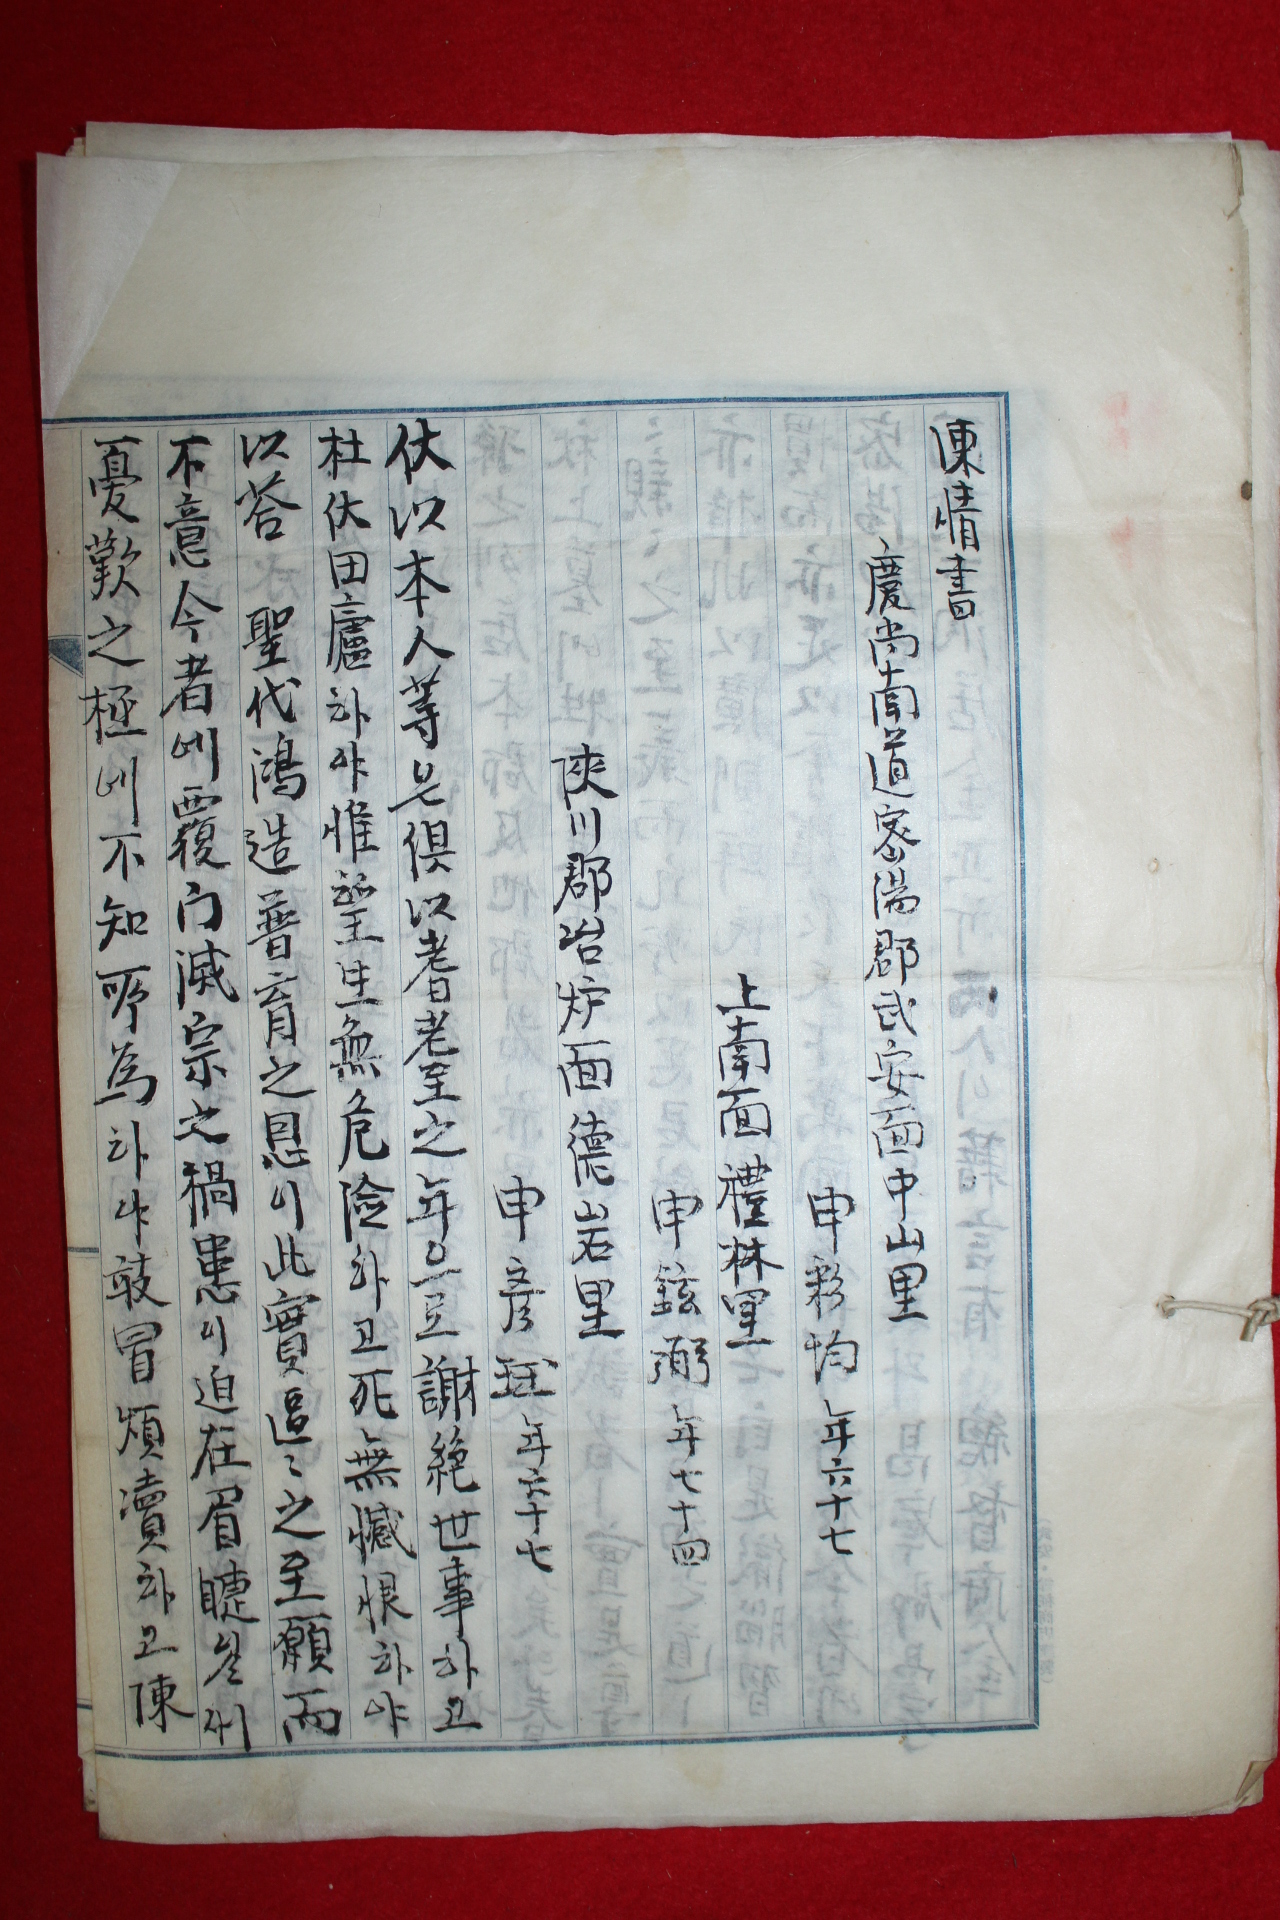 陳情書
慶尚南道密陽郡武安面中山里
申彩均 年六十七
上南面禮林里
申鉉弼 年七十四
陜川郡冶炉面德岩里
申彦珏 年六十七
伏以本人等은俱以耆老至之年으로謝絶世事하고
杜伏田廬하야惟望生無危險하고死無憾恨하야
以答 聖代鴻造普育之恩이此實區〻之至願而
不意今者에覆门滅宗之禍患이迫在眉睫일새
憂歎之極에不知所為하야敢冒煩瀆하고陳